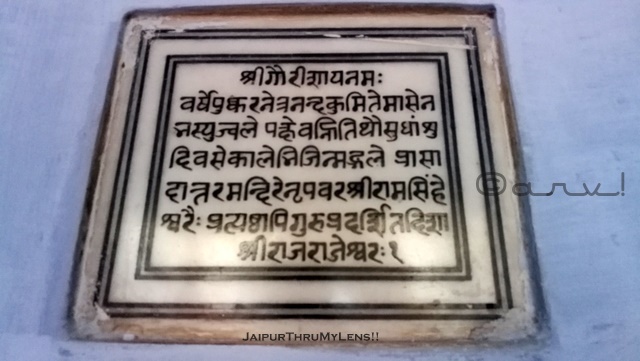 श्रीगौरीशायनमः
वर्षेपुष्करनेत्रनन्दकुमितेमासेन
भस्युज्वले पक्षेवह्नितिथौसुधांशु
दिवसेकालेभिजिन्मङ्गले प्रासा
दान्तरमन्दिरेनृपवरश्रीरामसिंहे
श्वरैः प्रत्यष्ठापिगुरुप्रदर्शितदिशा
श्रीराजराजेश्वरः १
©arv!
JaipurThruMyLens!!